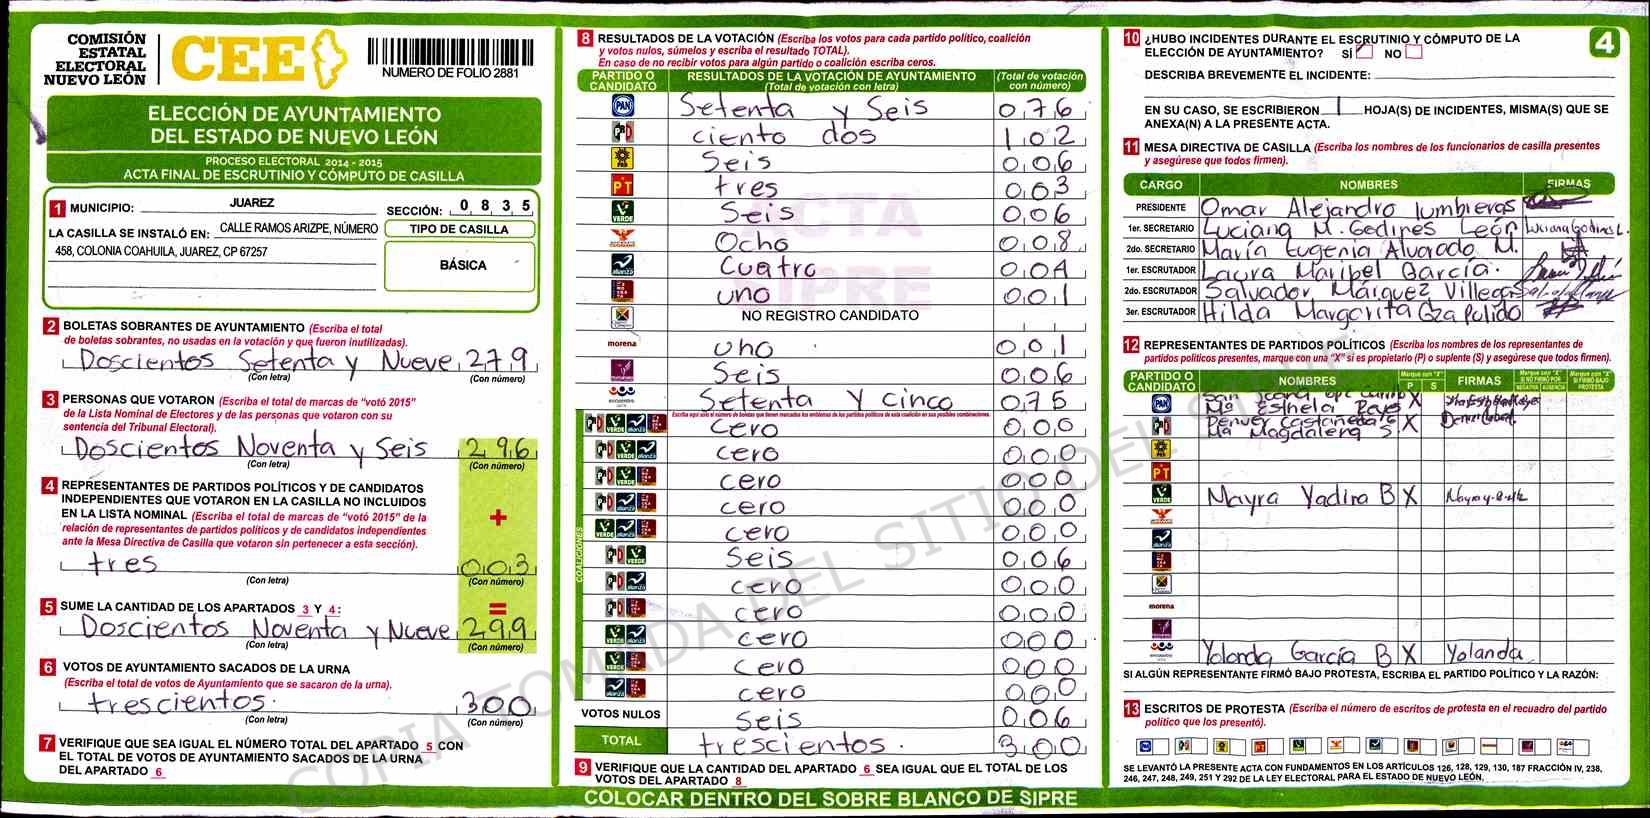 COMISIÓN
ESTATAL
ELECTORAL
NUEVO LEÓN
CEE
NUMERO DE FOLIO 2881
ELECCIÓN DE AYUNTAMIENTO
DEL ESTADO DE NUEVO LEÓN
PROCESO ELECTORAL 2014 - 2015
ACTA FINAL DE ESCRUTINIO Y CÓMPUTO DE CASILLA
1 MUNICIPIO: JUAREZ SECCIÓN: 0 8 3 5
LA CASILLA SE INSTALÓ EN: CALLE RAMOS ARIZPE, NÚMERO
458, COLONIA COAHUILA, JUAREZ, CP 67257
TIPO DE CASILLA
BÁSICA
2 BOLETAS SOBRANTES DE AYUNTAMIENTO (Escriba el total
de boletas sobrantes, no usadas en la votación y que fueron inutilizadas).
Doscientos Setenta y Nueve 279
(Con letra) (Con número)
3 PERSONAS QUE VOTARON (Escriba el total de marcas de "votó 2015"
de la Lista Nominal de Electores y de las personas que votaron con su
sentencia del Tribunal Electoral).
Doscientos Noventa y Seis 296
(Con letra) (Con número)
4 REPRESENTANTES DE PARTIDOS POLÍTICOS Y DE CANDIDATOS
INDEPENDIENTES QUE VOTARON EN LA CASILLA NO INCLUIDOS
EN LA LISTA NOMINAL (Escriba el total de marcas de "votó 2015" de la
relación de representantes de partidos políticos y de candidatos independientes
ante la Mesa Directiva de Casilla que votaron sin pertenecer a esta sección).
+
tres 003
(Con letra) (Con número)
5 SUME LA CANTIDAD DE LOS APARTADOS 3 Y 4: =
Doscientos Noventa y Nueve 299
(Con letra) (Con número)
6 VOTOS DE AYUNTAMIENTO SACADOS DE LA URNA
(Escriba el total de votos de Ayuntamiento que se sacaron de la urna).
trescientos. 300
(Con letra) (Con número)
7 VERIFIQUE QUE SEA IGUAL EL NÚMERO TOTAL DEL APARTADO 5 CON
EL TOTAL DE VOTOS DE AYUNTAMIENTO SACADOS DE LA URNA
DEL APARTADO 6
8 RESULTADOS DE LA VOTACIÓN (Escriba los votos para cada partido político, coalición
y votos nulos, súmelos y escriba el resultado TOTAL).
En caso de no recibir votos para algún partido o coalición escriba ceros.
PARTIDO O CANDIDATO RESULTADOS DE LA VOTACIÓN DE AYUNTAMIENTO (Total de votación con letra) (Total de votación con número)
PAN Setenta y Seis 076
PRD ciento dos 102
PRD Seis 006
PT tres 003
VERDE Seis 006
Ocho 008
alianza Cuatro 004
uno 001
NO REGISTRO CANDIDATO
morena uno 001
Seis 006
encuentro Setenta y cinco 075
Escriba aquí solo el número de boletas que tienen marcados los emblemas de los partidos políticos de esta coalición en sus posibles combinaciones.
COALICIONES
cero 000
cero 000
cero 000
cero 000
cero 000
Seis 006
cero 000
cero 000
cero 000
cero 000
cero 000
VOTOS NULOS Seis 006
TOTAL trescientos. 300
9 VERIFIQUE QUE LA CANTIDAD DEL APARTADO 6 SEA IGUAL QUE EL TOTAL DE LOS
VOTOS DEL APARTADO 8
COLOCAR DENTRO DEL SOBRE BLANCO DE SIPRE
ACTA
SIPRE
COPIA TOMADA DEL SITIO DEL SIPRE
10 ¿HUBO INCIDENTES DURANTE EL ESCRUTINIO Y CÓMPUTO DE LA
ELECCIÓN DE AYUNTAMIENTO? SÍ NO
4
DESCRIBA BREVEMENTE EL INCIDENTE:
EN SU CASO, SE ESCRIBIERON 1 HOJA(S) DE INCIDENTES, MISMA(S) QUE SE
ANEXA(N) A LA PRESENTE ACTA.
11 MESA DIRECTIVA DE CASILLA (Escriba los nombres de los funcionarios de casilla presentes
y asegúrese que todos firmen).
CARGO NOMBRES FIRMAS
PRESIDENTE Omar Alejandro lumbreras
1er. SECRETARIO Luciana M. Godines León Luciana Godines L.
2do. SECRETARIO María Eugenia Alvarado M.
1er. ESCRUTADOR Laura Maribel García.
2do. ESCRUTADOR Salvador Márquez Villegas
3er. ESCRUTADOR Hilda Margarita Gza Pulido
12 REPRESENTANTES DE PARTIDOS POLÍTICOS (Escriba los nombres de los representantes de
partidos políticos presentes, marque con una "X" si es propietario (P) o suplente (S) y asegúrese que todos firmen).
PARTIDO O CANDIDATO NOMBRES Marque con "X" P S FIRMAS Marque con "X" SI NO FIRMÓ POR NEGATIVA AUSENCIA Marque con "X" SI FIRMÓ BAJO PROTESTA
PAN Ma Esthela Reyes X
Denver Castañeda X
Ma Magdalena S
PRD
PT
VERDE Mayra Yadira B X
alianza
morena
encuentro Yolanda García B X Yolanda
SI ALGÚN REPRESENTANTE FIRMÓ BAJO PROTESTA, ESCRIBA EL PARTIDO POLÍTICO Y LA RAZÓN:
13 ESCRITOS DE PROTESTA (Escriba el número de escritos de protesta en el recuadro del partido
político que los presentó).
SE LEVANTÓ LA PRESENTE ACTA CON FUNDAMENTOS EN LOS ARTÍCULOS 126, 128, 129, 130, 187 FRACCIÓN IV, 238,
246, 247, 248, 249, 251 Y 292 DE LA LEY ELECTORAL PARA EL ESTADO DE NUEVO LEÓN.